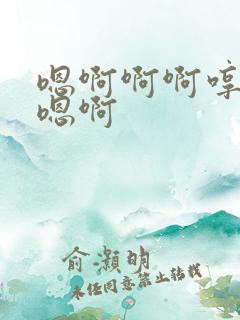 嗯啊啊啊啊哼
嗯啊
俞灏明
未经同意禁止转载